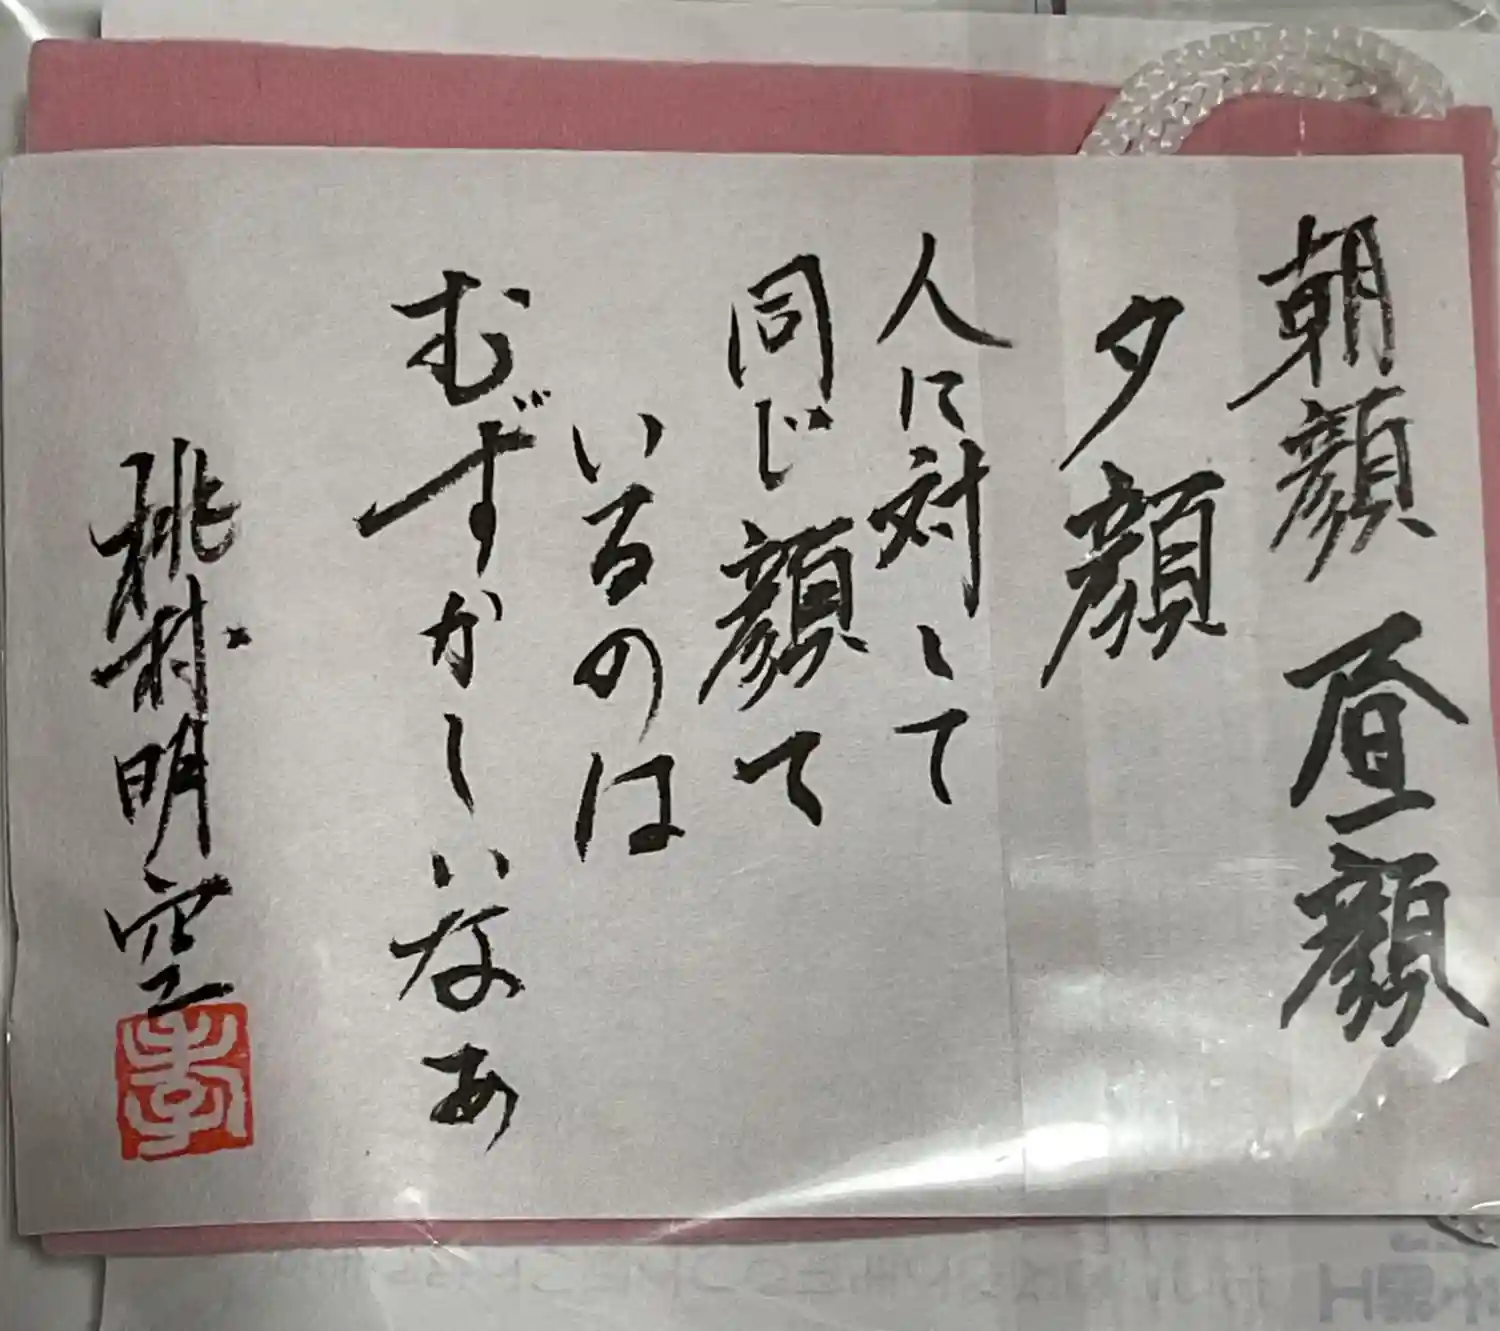 朝顔 昼顔
夕顔
人に対して
同じ顔て
いるのは
むずかしいなあ
桃村明空